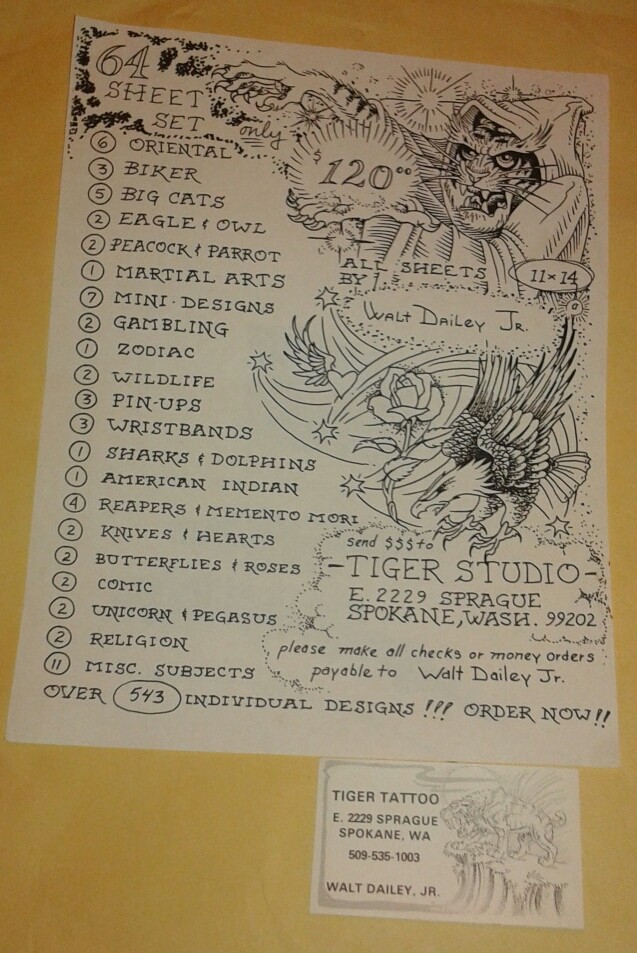 64
SHEET
SET
only
$120⁰⁰
6 ORIENTAL
3 BIKER
5 BIG CATS
2 EAGLE & OWL
2 PEACOCK & PARROT
1 MARTIAL ARTS
7 MINI-DESIGNS
2 GAMBLING
1 ZODIAC
2 WILDLIFE
3 PIN-UPS
3 WRISTBANDS
1 SHARKS & DOLPHINS
1 AMERICAN INDIAN
4 REAPERS & MEMENTO MORI
2 KNIVES & HEARTS
2 BUTTERFLIES & ROSES
2 COMIC
2 UNICORN & PEGASUS
2 RELIGION
11 MISC. SUBJECTS
ALL SHEETS
BY
11x14
Walt Dailey Jr.
send $$$ to
-TIGER STUDIO-
E. 2229 SPRAGUE
SPOKANE, WASH. 99202
please make all checks or money orders
payable to Walt Dailey Jr.
OVER 543 INDIVIDUAL DESIGNS !!! ORDER NOW!!
TIGER TATTOO
E. 2229 SPRAGUE
SPOKANE, WA
509-535-1003
WALT DAILEY, JR.